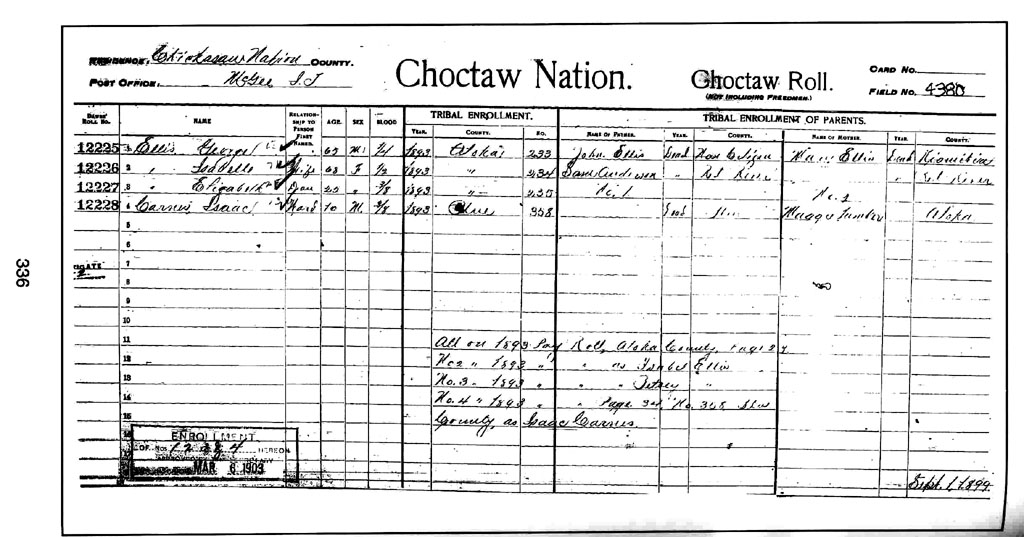 RESIDENCE: Chickasaw Nation COUNTY.
POST OFFICE: McGee I.T
Choctaw Nation.
Choctaw Roll.
(NOT INCLUDING FREEDMEN.)
CARD NO.
FIELD NO. 4380
DAWES' ROLL NO. NAME RELATIONSHIP TO PERSON FIRST NAMED. AGE. SEX BLOOD TRIBAL ENROLLMENT. TRIBAL ENROLLMENT OF PARENTS.
YEAR. COUNTY. NO. NAME OF FATHER. YEAR. COUNTY. NAME OF MOTHER. YEAR. COUNTY.
12225 Ellis, George 63 M. 1/4 1893 Atoka 233 John Ellis Dead Non Citizen Ellis Dead Kiamitia
12226 2 " Isabelle Wife F 1/2 1893 " 234 Sam Anderson " Red River " Red River
12227 3 " Elizabeth Dau " 3/8 1893 " 235 No.1 No.2
12228 4 Carnes, Isaac Ward 10 M. 1893 Blue 358 Dead Atoka
5
6
7
8
9
10
11 All on 1893 Pay Roll, Atoka County, Page 27
12 No.2 " 1893 " " as Isabel Ellis
13 No.3 " 1893 " " " Betsey "
14 No.4 " 1893 " " Page 34, No. 358, Blue
15 County, as Isaac Carnes.
ENROLLMENT
OF NOS. 1 2 3 & 4 HEREON
MAR 6 1903
Sept. 1, 1899
336